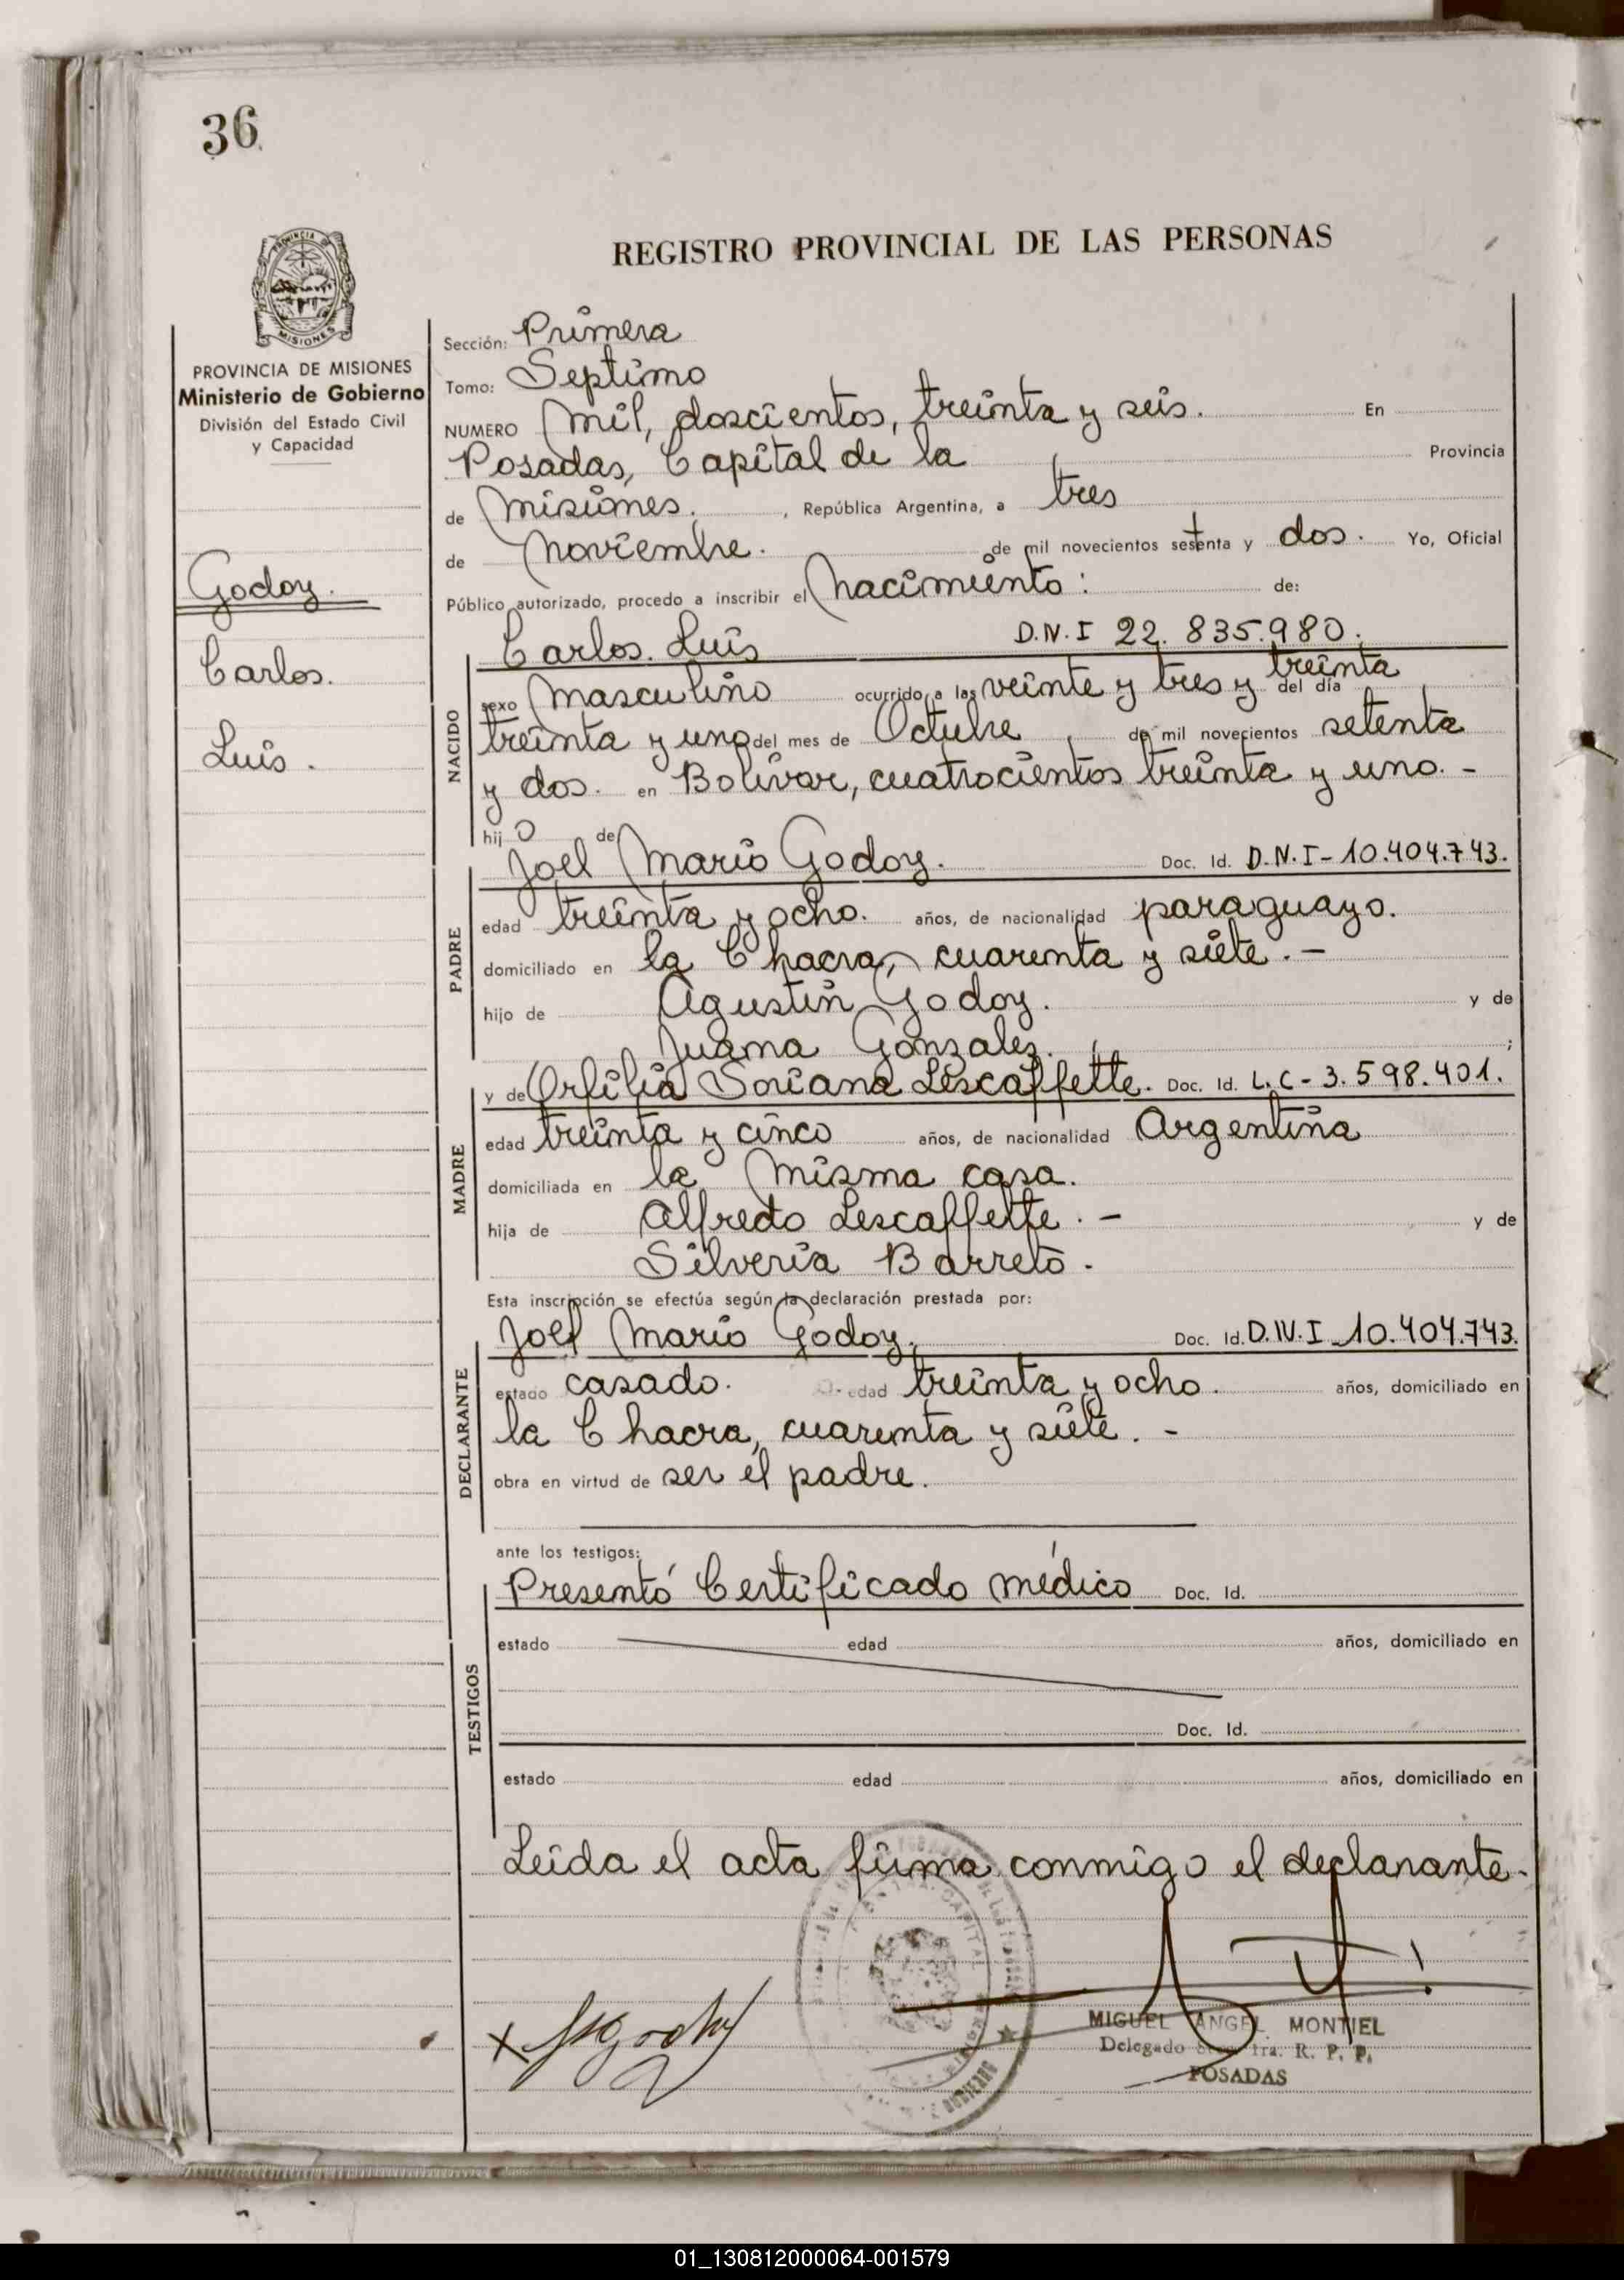 36
REGISTRO PROVINCIAL DE LAS PERSONAS
PROVINCIA DE MISIONES
Ministerio de Gobierno
División del Estado Civil
y Capacidad
Godoy.
Carlos.
Luis.
Sección: Primera
Tomo: Septimo
NUMERO mil, doscientos, treinta y seis. En
Posadas, Capital de la Provincia
de misiones. , República Argentina, a tres
de noviembre. de mil novecientos setenta y dos. Yo, Oficial
Público autorizado, procedo a inscribir el nacimiento: de:
Carlos. Luis D.N.I 22.835.980.
NACIDO
sexo masculino ocurrido a las veinte y tres y treinta del día
treinta y uno del mes de Octubre de mil novecientos setenta
y dos. en Bolivar, cuatrocientos treinta y uno. -
hij o de
PADRE
Joel Mario Godoy. Doc. Id. D.N.I-10.404.743.
edad treinta y ocho. años, de nacionalidad paraguayo.
domiciliado en la Chacra, cuarenta y siete. -
hijo de Agustin Godoy. y de
Juana Gonzalez. ;
MADRE
y de Orfilia Soriana Lescaffette. Doc. Id. L.C-3.598.401.
edad treinta y cinco años, de nacionalidad Argentina
domiciliada en la misma casa.
hija de Alfredo Lescaffette. - y de
Silveria Barreto.
Esta inscripción se efectúa según la declaración prestada por:
DECLARANTE
Joel Mario Godoy. Doc. Id. D.N.I 10.404.743.
estado casado. edad treinta y ocho. años, domiciliado en
la Chacra, cuarenta y siete. -
obra en virtud de ser el padre.
ante los testigos:
TESTIGOS
Presentó Certificado médico Doc. Id.
estado edad años, domiciliado en
Doc. Id.
estado edad años, domiciliado en
Leida el acta firma conmigo el declarante.
MIGUEL ANGEL MONTIEL
Delegado 1ra. R. P. P.
POSADAS
01_130812000064-001579